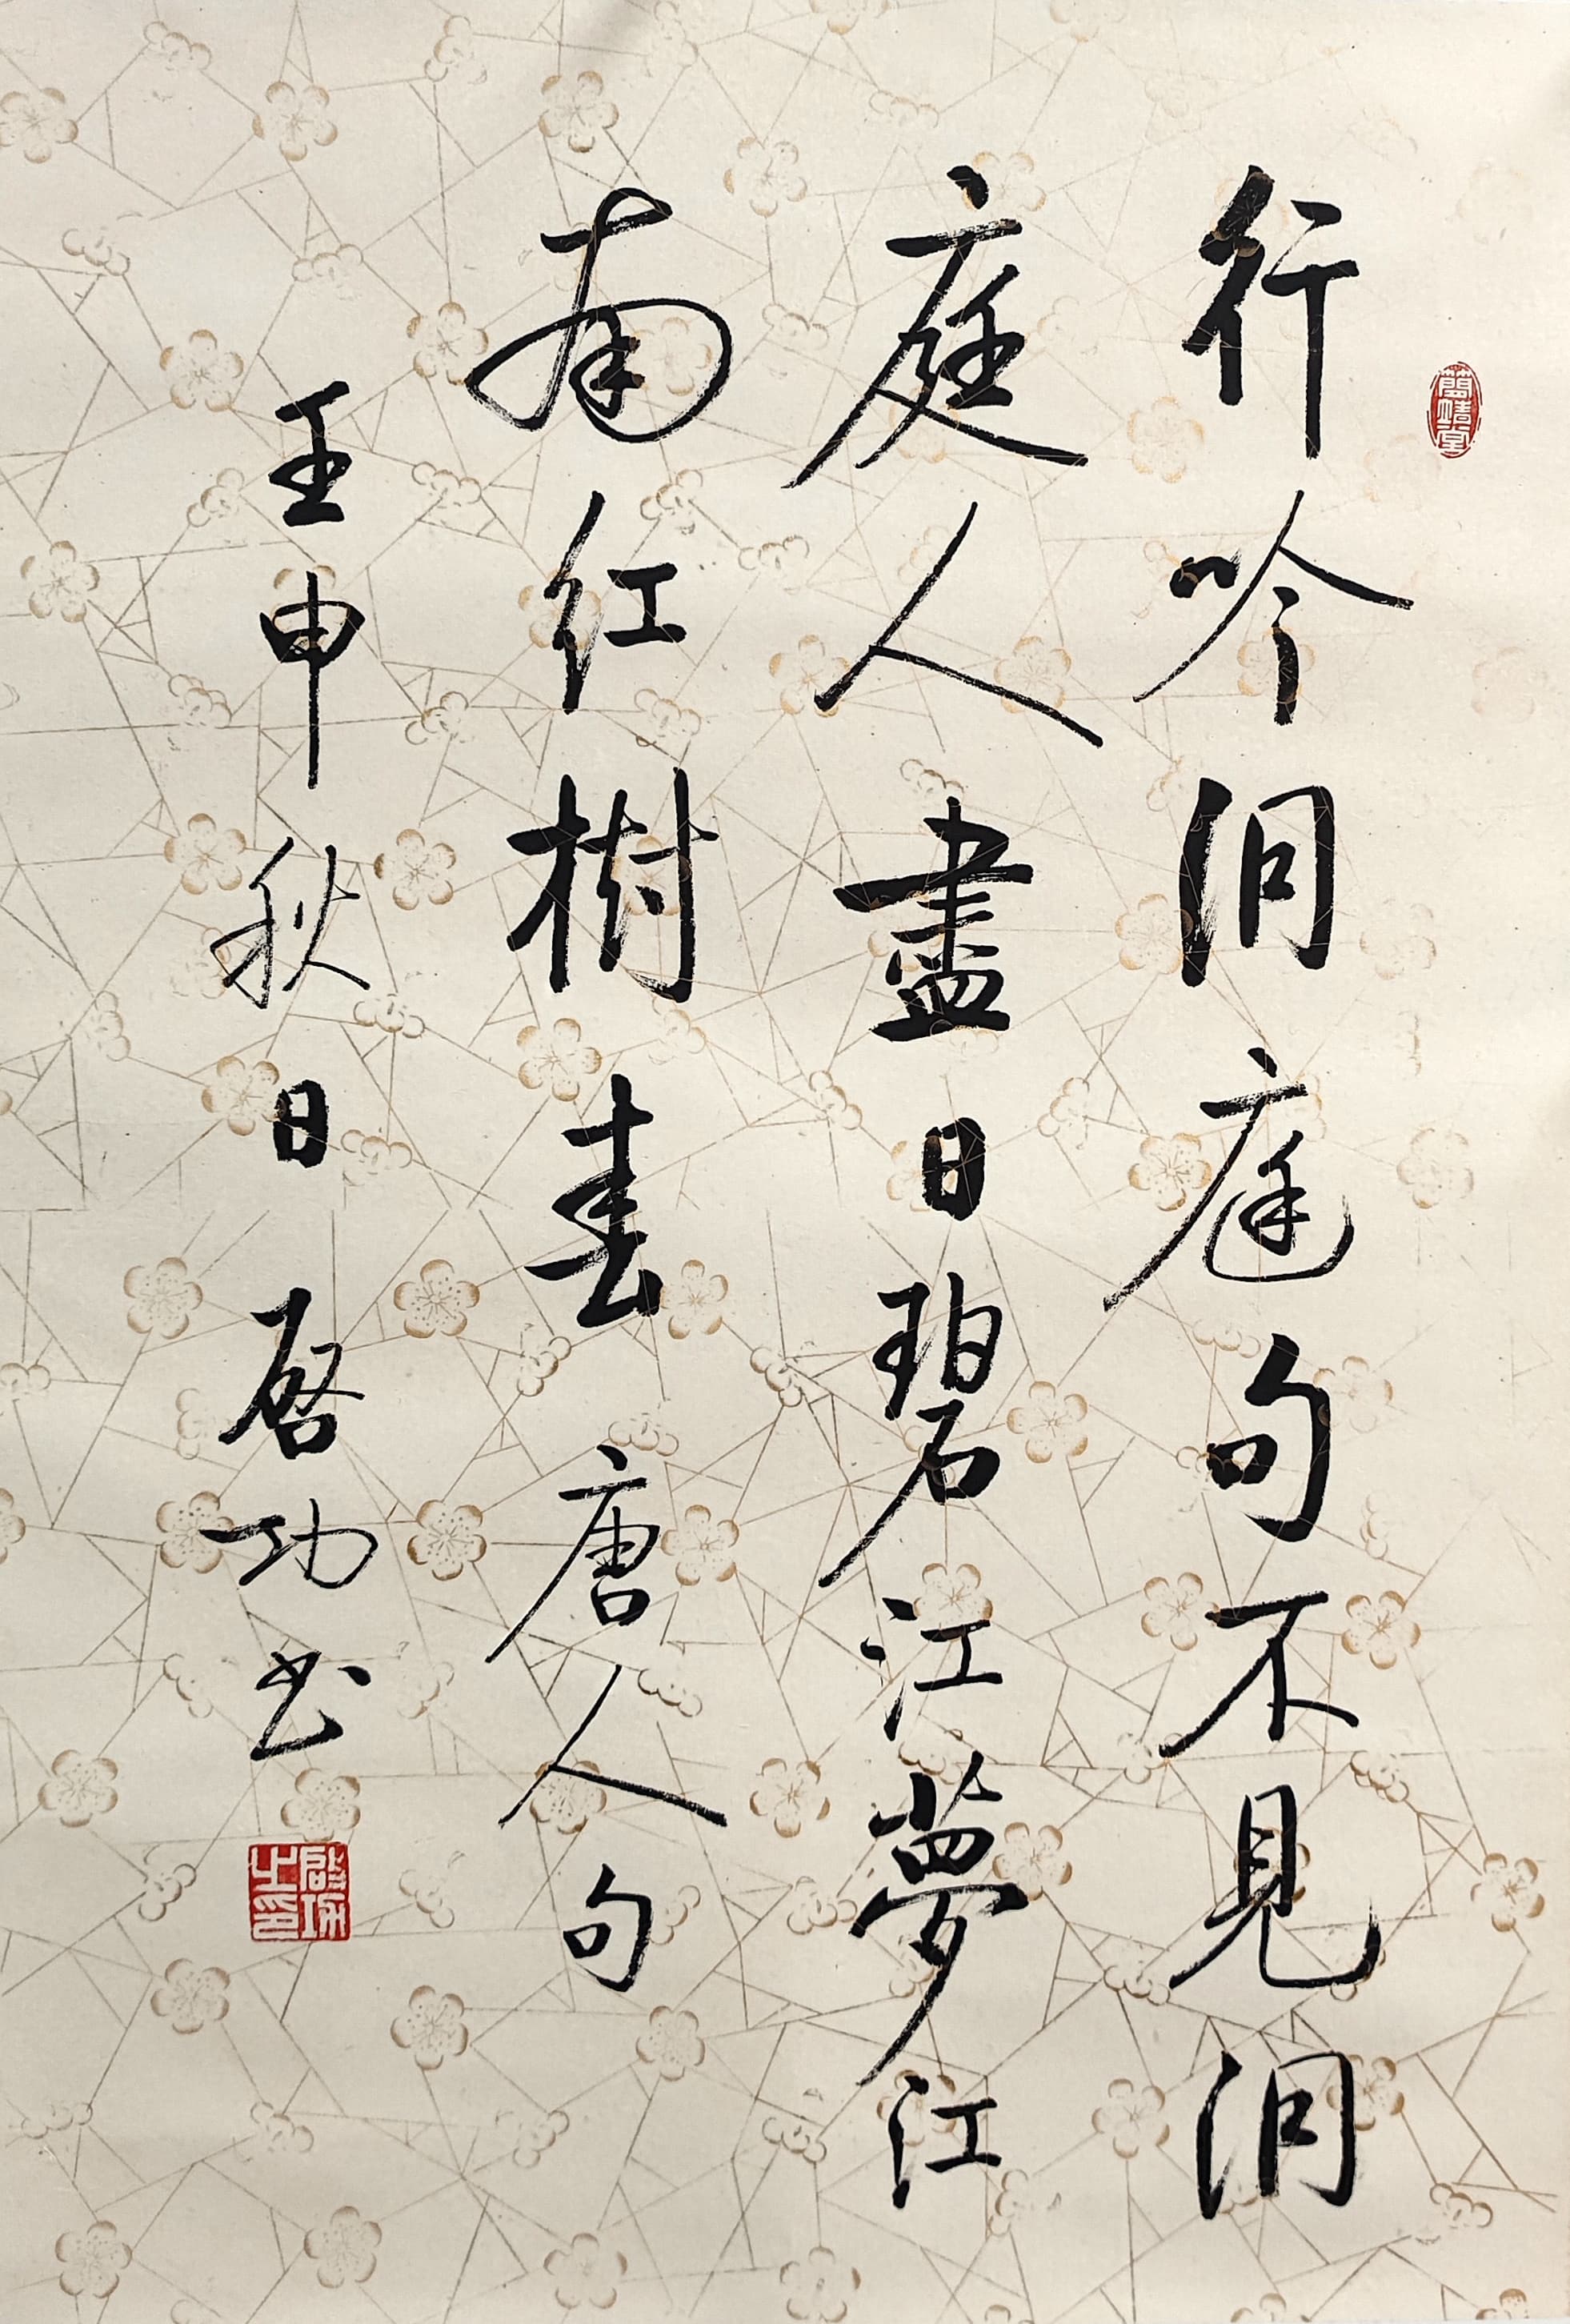 行吟洞庭句不見洞
庭人盡日碧江夢江
南紅樹春 唐人句
壬申秋日 啓功書
簡靖堂
啓功之印